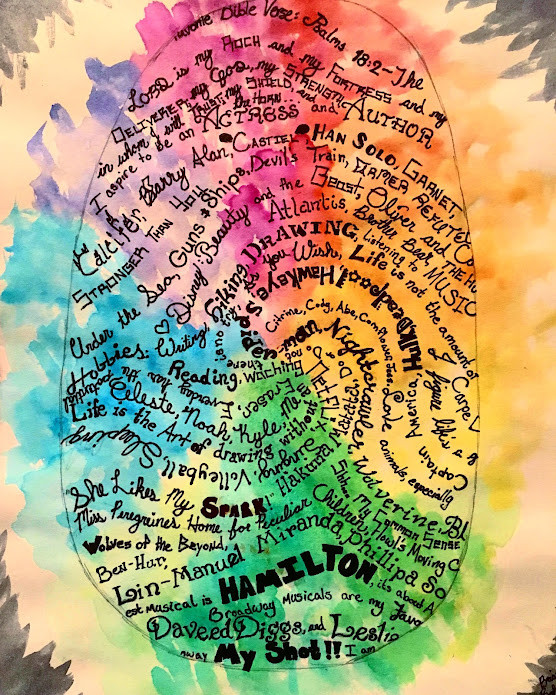 Favorite Bible Verse: Psalms 18:2-The
LORD is my ROCK and my FORTRESS and my
DELIVERER, my GOD, my STRENGTH
in whom I will TRUST; my SHIELD, and
the HORN...
I aspire to be an ACTRESS and AUTHOR
Barry Alan, CASTIEL HAN SOLO, GARNET,
Calcifer,
STRONGER THAN YOU,
Guns & Ships, Devil's Train,
Under the Sea,
Disney: Beauty and the Beast, Oliver and
Atlantis, Brother Bear, THE
listening to MUSIC
Hobbies: Writing, Biking, DRAWING,
As you Wish, Life is not the amount of
Reading, watching
Deadpool, Hawkeye, Spider-man, Nightcrawler, Wolverine,
HULK
Citrine, Cody, Abe, Cornflower, Jess, Love
animals, especially
Captain America,
Carpe
Celeste, Noah, Kyle,
Life is the Art of drawing without
Eraser,
Sleeping, Volleyball,
NETFLIX
Hakuna Matata,
"She Likes My SPARK!"
Miss Peregrine's Home for Peculiar Children, Howl's Moving
Common Sense
Wolves of the Beyond,
Ben-Hur,
Lin-Manuel Miranda, Phillipa So
est musical is HAMILTON, it's about A
Broadway Musicals are my favo
Daveed Diggs, and Leslie
away My Shot!! I am